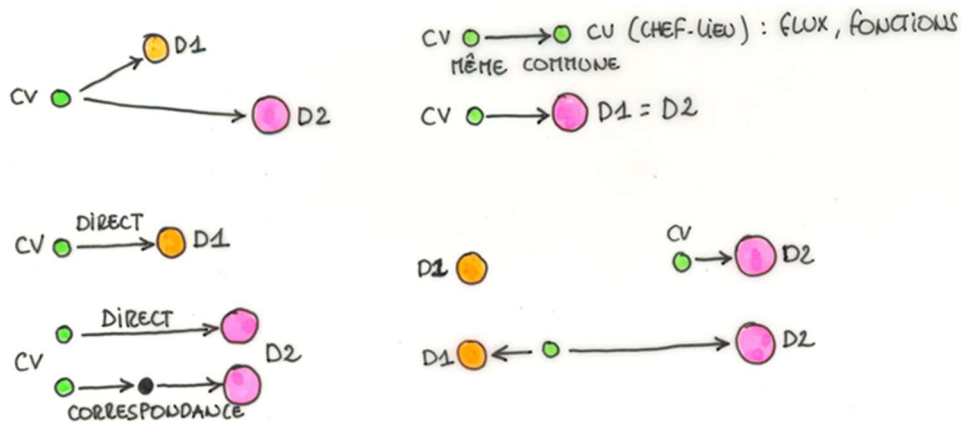 D1
CV
D2
CV CU (CHEF-LIEU) : FLUX, FONCTIONS
MÊME COMMUNE
CV D1 = D2
DIRECT
CV D1
DIRECT
CV
D2
CORRESPONDANCE
CV
D1 D2
D1 D2